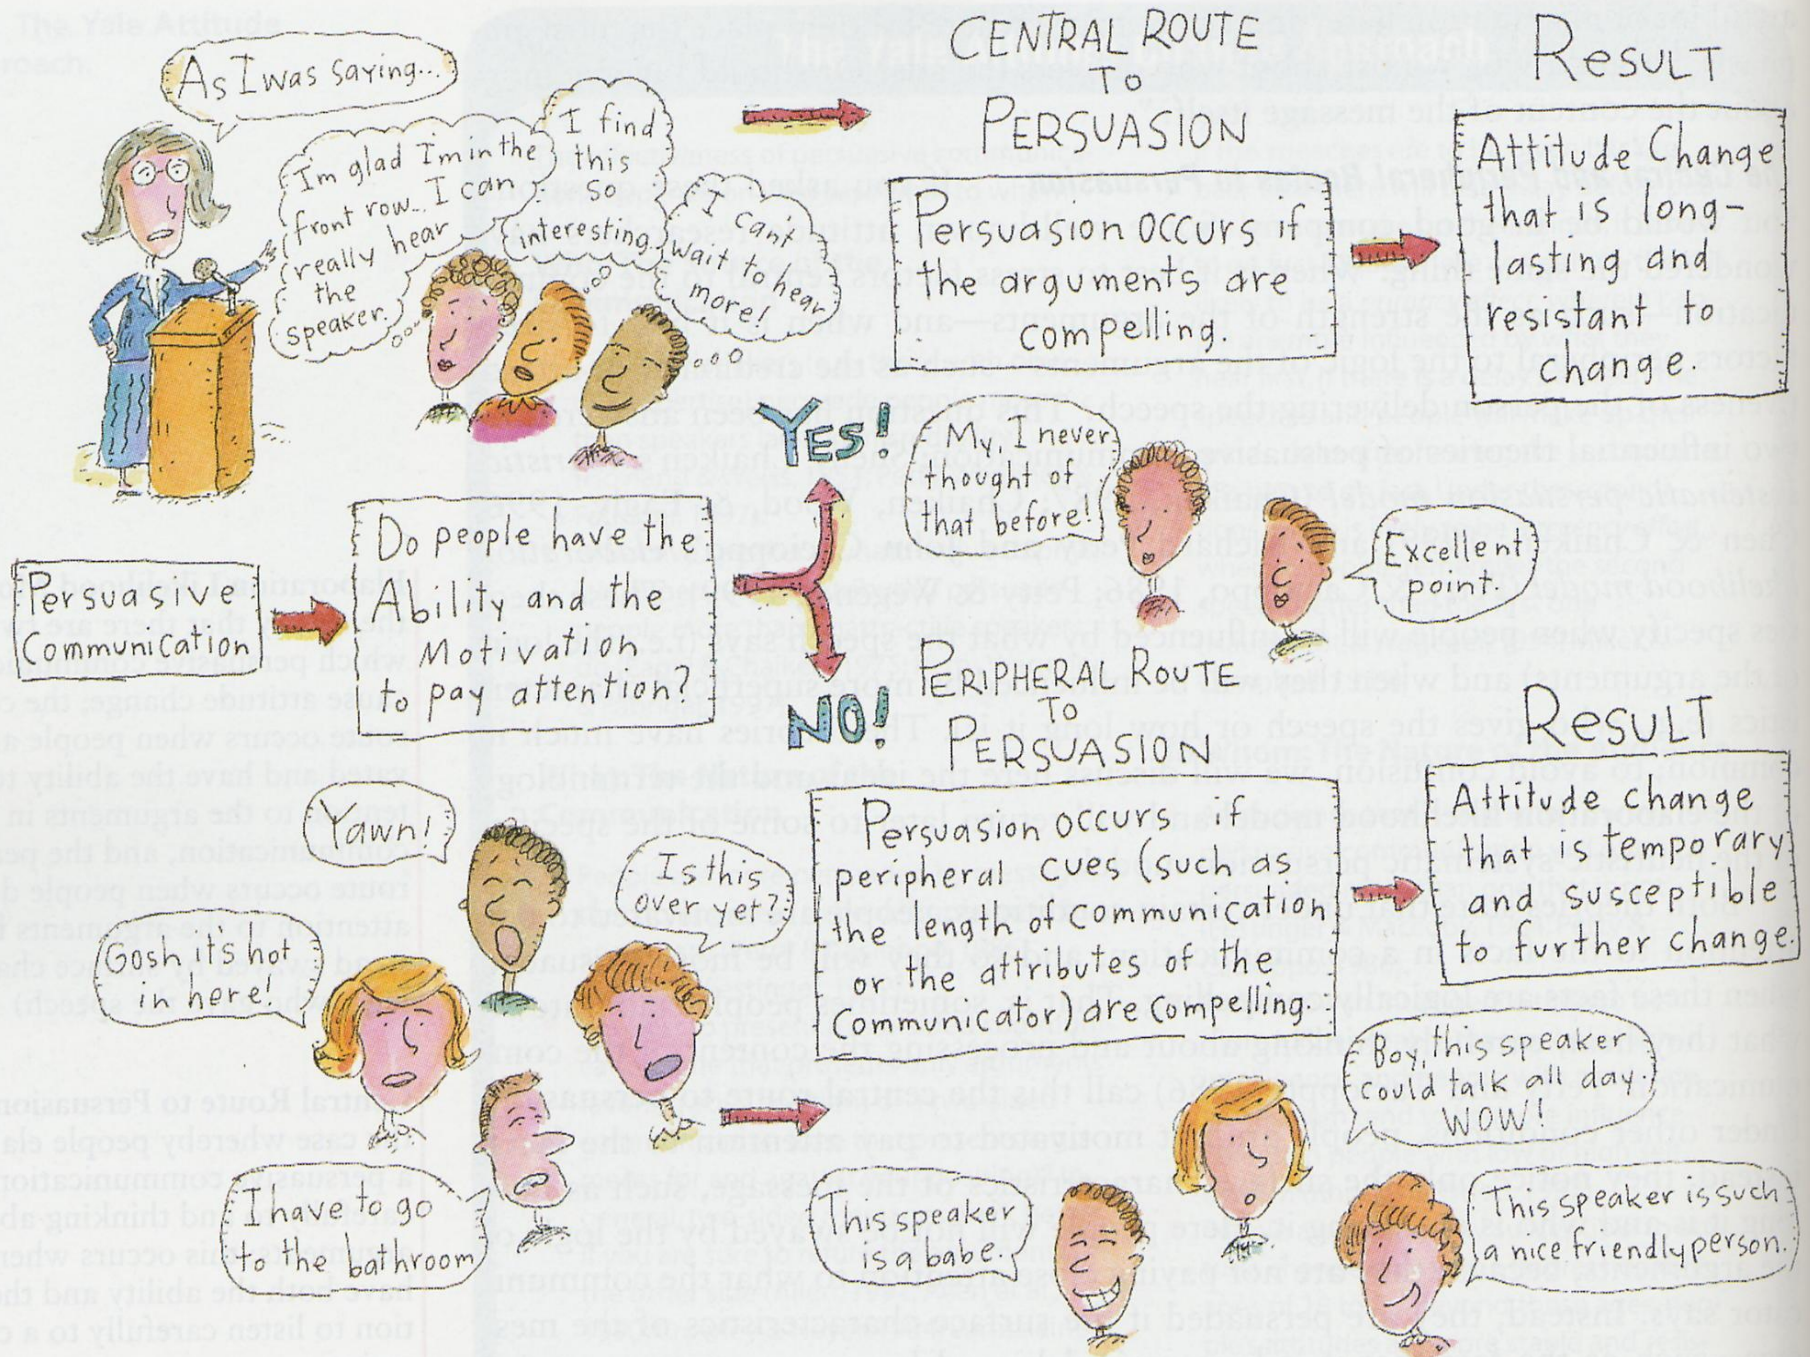 As I was saying...
I'm glad I'm in the
front row... I can
really hear
the
speaker.
I find
this
so
interesting.
I can't
wait to hear
more!
CENTRAL ROUTE
TO
PERSUASION
Persuasion occurs if
the arguments are
compelling.
RESULT
Attitude Change
that is long-
lasting and
resistant to
change.
YES!
My, I never
thought of
that before!
Excellent
point.
Persuasive
Communication
Do people have the
Ability and the
Motivation
to pay attention?
NO!
PERIPHERAL ROUTE
TO
PERSUASION
Persuasion occurs if
peripheral cues (such as
the length of communication
or the attributes of the
communicator) are compelling.
RESULT
Attitude change
that is temporary
and susceptible
to further change.
Yawn!
Is this
over yet?
Gosh it's hot
in here!
I have to go
to the bathroom
Boy, this speaker
could talk all day.
WOW!
This speaker
is a babe.
This speaker is such
a nice friendly person.